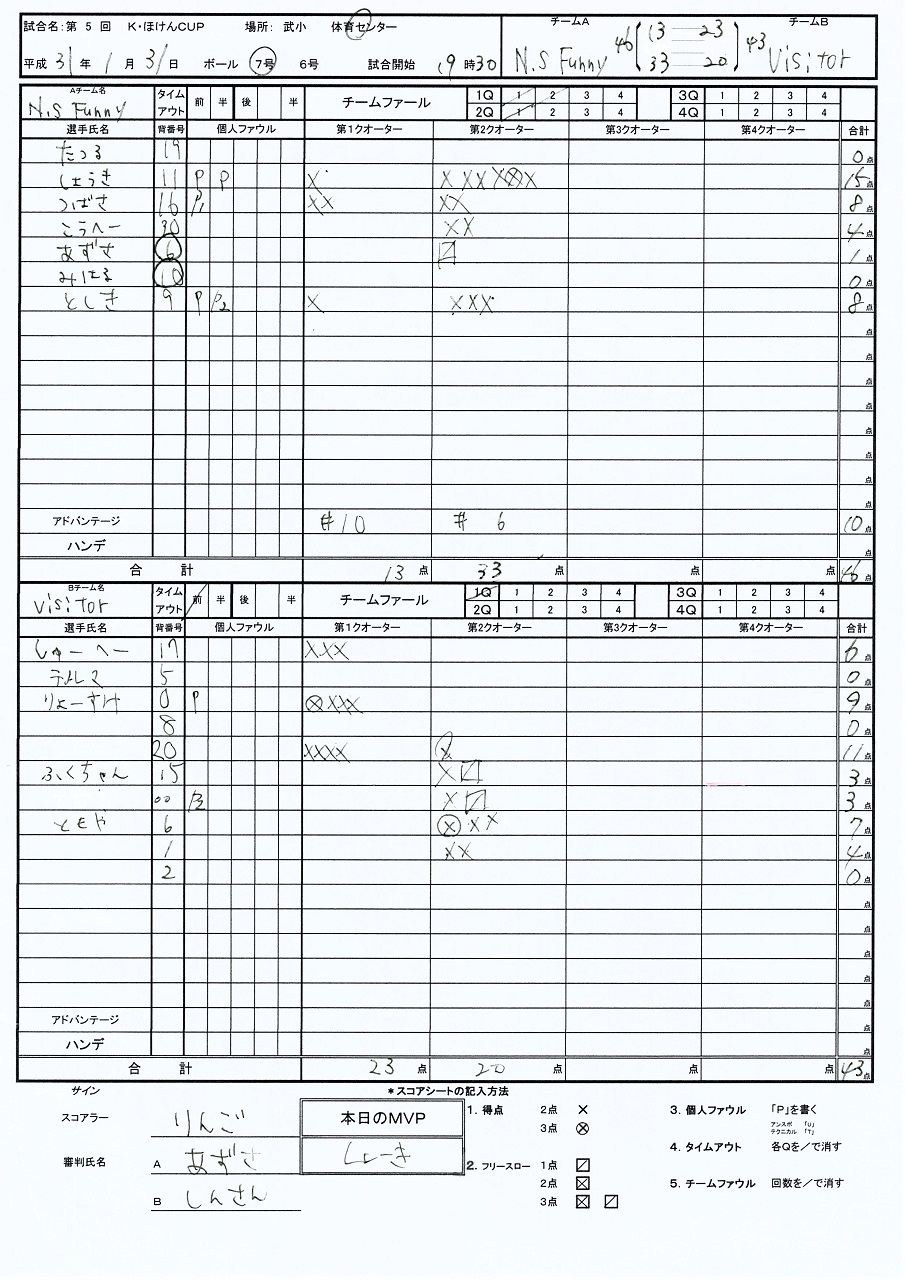 試合名:第 5 回 K・ほけんCUP 場所: 武小 体育センター
平成 31 年 1 月 31 日 ボール 7号 6号 試合開始 19 時 30
チームA チームB
N.S Funny 46 13 23 43 Visitor
33 20
Aチーム名 N.S Funny タイムアウト 前 半 後 半 チームファール 1Q 1 2 3 4 3Q 1 2 3 4
2Q 1 2 3 4 4Q 1 2 3 4
選手氏名 背番号 個人ファウル 第1クオーター 第2クオーター 第3クオーター 第4クオーター 合計
たつる 19 0点
しょうき 11 P P X X X X X ⊗ X 15点
つばさ 16 P1 X X X X 8点
こうへー 30 X X 4点
あずさ 6 〼 1点
みはる 10 0点
としき 9 P P2 X X X X 8点
点
点
点
点
点
点
点
点
アドバンテージ #10 # 6 10点
ハンデ 点
合 計 13 点 33 点 点 点 46点
Bチーム名 Visitor タイムアウト 前 半 後 半 チームファール 1Q 1 2 3 4 3Q 1 2 3 4
2Q 1 2 3 4 4Q 1 2 3 4
選手氏名 背番号 個人ファウル 第1クオーター 第2クオーター 第3クオーター 第4クオーター 合計
しゅーへー 17 X X X 6点
テルマ 5 0点
りょーすけ 0 P ⊗ X X X 9点
8 0点
20 X X X X ⊗ 11点
ふくちゃん 15 X 〼 3点
00 P2 X 〼 3点
ともや 6 ⊗ X X 7点
1 X X 4点
2 0点
点
点
点
点
点
アドバンテージ 点
ハンデ 点
合 計 23 点 20 点 点 点 43点
サイン *スコアシートの記入方法
スコアラー りんご 本日のMVP しょーき
審判氏名 A あずさ
B しんさん
1. 得点 2点 ×
3点 ⊗
2. フリースロー 1点 〼
2点 ☒
3点 ☒ 〼
3. 個人ファウル 「P」を書く
アンスポ 「U」
テクニカル 「T」
4. タイムアウト 各Qを/で消す
5. チームファウル 回数を/で消す